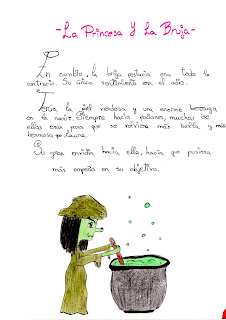 -La Princesa Y La Bruja-
En cambio, la bruja apestosa era todo lo
contrario. Su único sentimiento era el odio.
Tenía la piel verdosa y una enorme berruga
en la nariz. Siempre hacía pociones, muchas de
ellas eran para que se volviera más bella y más
hermosa que Laura.
Su gran envidia hacia ella, hacía que pusiera
más empeño en su objetivo.